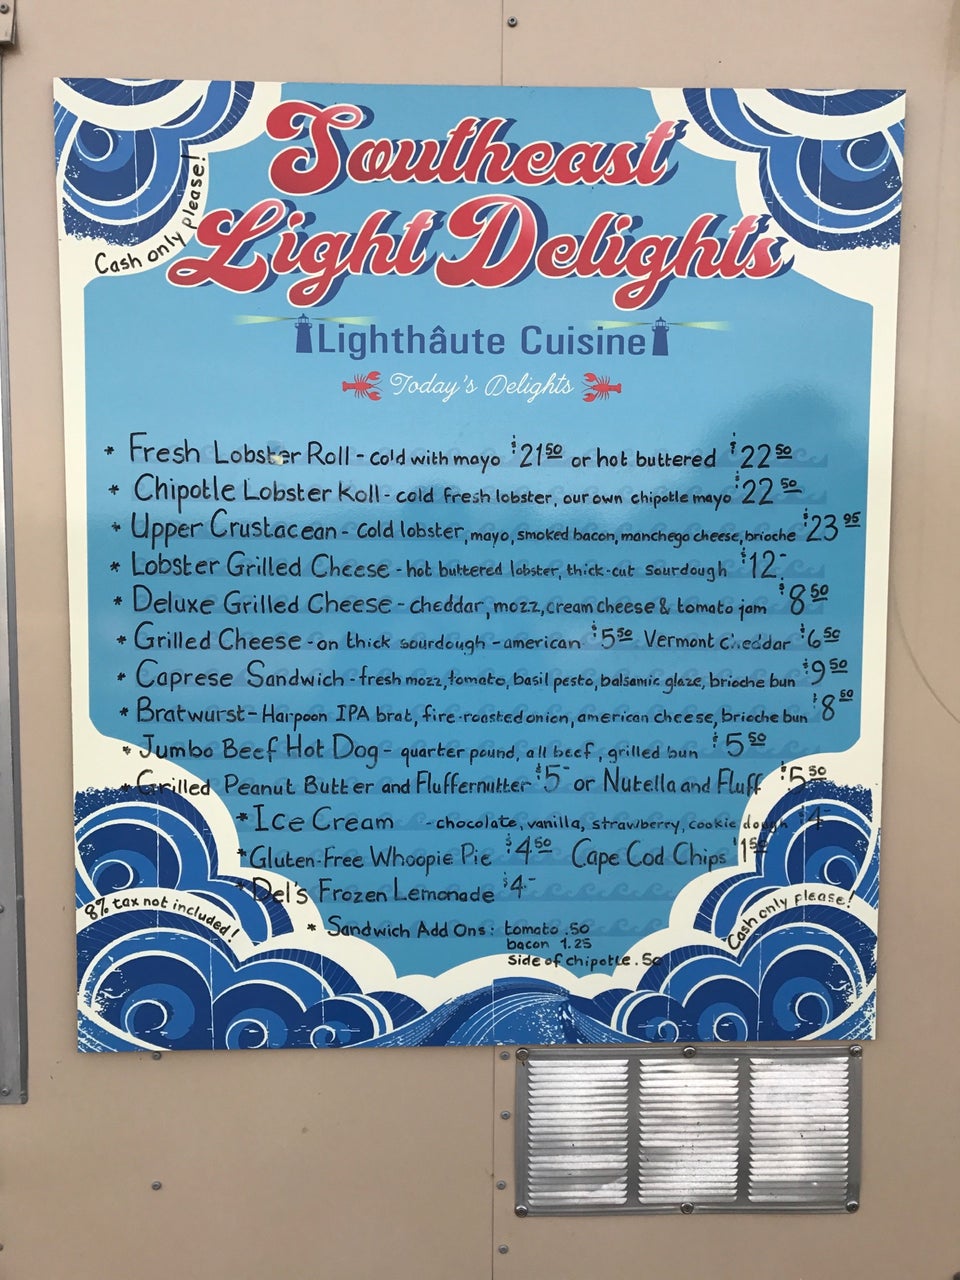 Southeast
Light Delights
Cash only please!
Lighthâute Cuisine
Today's Delights
* Fresh Lobster Roll - cold with mayo $21 50 or hot buttered $22 50
* Chipotle Lobster Roll - cold fresh lobster, our own chipotle mayo $22 50
* Upper Crustacean - cold lobster, mayo, smoked bacon, manchego cheese, brioche $23 95
* Lobster Grilled Cheese - hot buttered lobster, thick-cut sourdough $12.-
* Deluxe Grilled Cheese - cheddar, mozz, cream cheese & tomato jam $8 50
* Grilled Cheese - on thick sourdough - american $5 50 Vermont Cheddar $6 50
* Caprese Sandwich - fresh mozz, tomato, basil pesto, balsamic glaze, brioche bun $9 50
* Bratwurst - Harpoon IPA brat, fire-roasted onion, american cheese, brioche bun $8 50
* Jumbo Beef Hot Dog - quarter pound, all beef, grilled bun $5 50
* Grilled Peanut Butter and Fluffernutter $5- or Nutella and Fluff $5 50
* Ice Cream - chocolate, vanilla, strawberry, cookie dough $4-
* Gluten-Free Whoopie Pie $4 50 Cape Cod Chips $1 50
* Del's Frozen Lemonade $4-
* Sandwich Add Ons: tomato .50
bacon 1.25
side of chipotle .50
8% tax not included!
Cash only please!